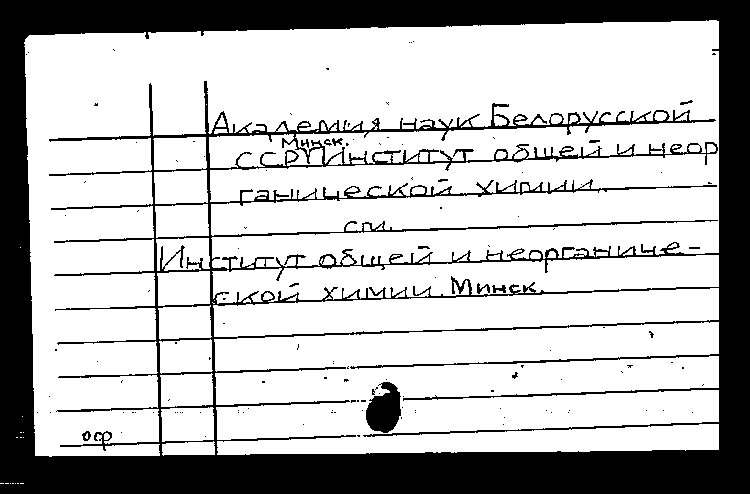 Академия наук Белорусской
Минск.
ССР. Институт общей и неор
ганической химии.
см.
Институт общей и неорганиче-
ской химии. Минск.
оф